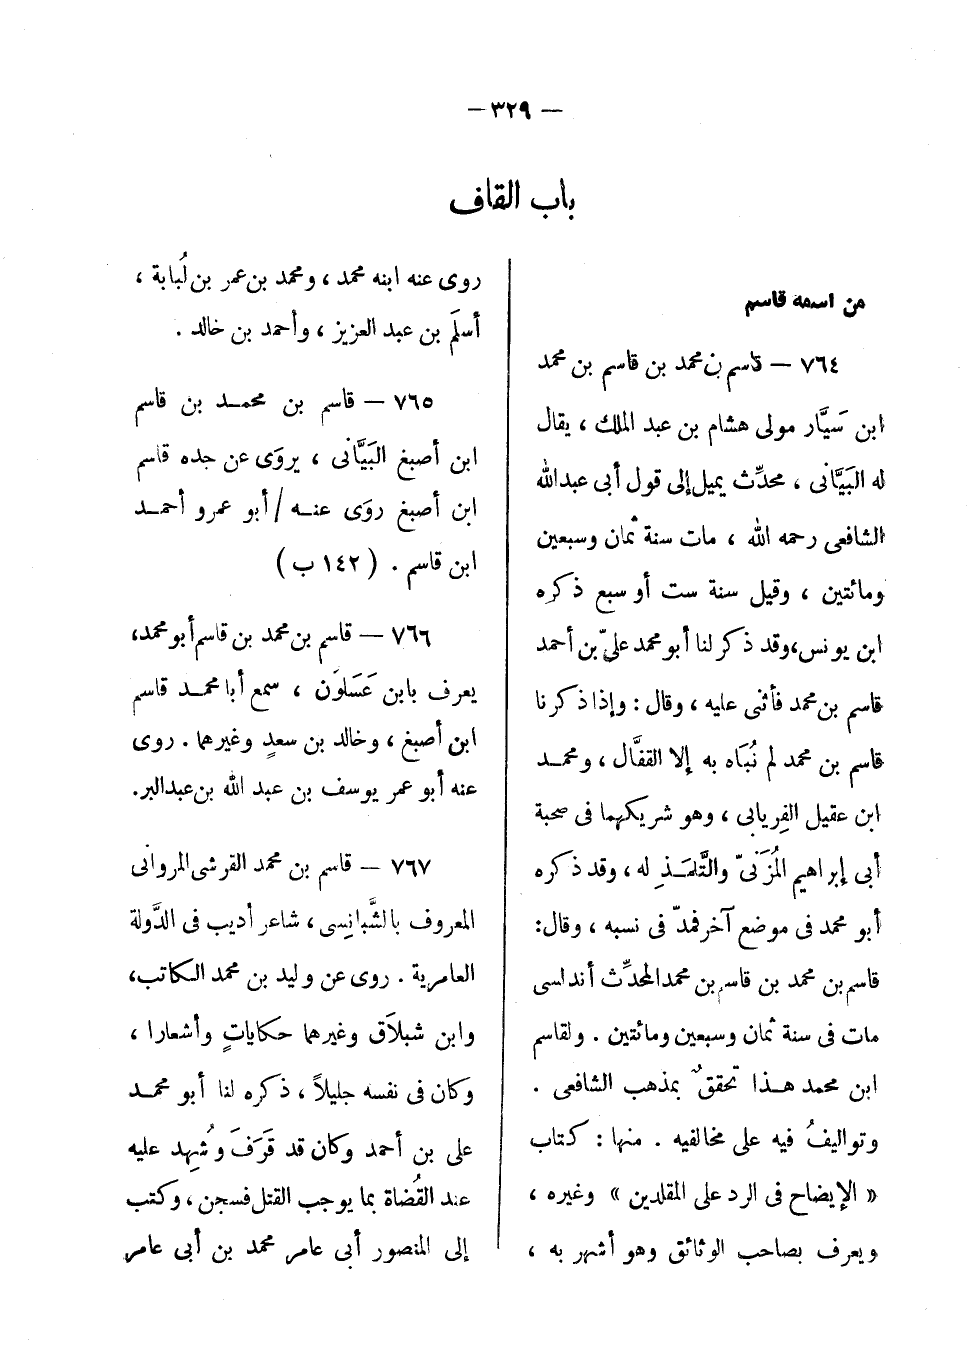 — ٣٢٩ —
باب القاف
من اسمه قاسم
٧٦٤ — قاسم بن محمد بن قاسم بن محمد
ابن سَيَّار مولى هشام بن عبد الملك ، يقال
له البَيَّانى ، محدِّث يميل إلى قول أبى عبد الله
الشافعى رحمه الله ، مات سنة ثمان وسبعين
ومائتين ، وقيل سنة ست أو سبع ذكره
ابن يونس،وقد ذكر لنا أبو محمد علىّ بن أحمد
قاسم بن محمد فأثنى عليه ، وقال : وإذا ذكرنا
قاسم بن محمد لم نُبَاه به إلا القفَّال ، ومحمـد
ابن عقيل الفِريابى ، وهو شريكهما فى صحبة
أبى إبراهيم المُزَنىّ والتَّلمَـذِ له ، وقد ذكره
أبو محمد فى موضع آخر فمدّ فى نسبه ، وقال:
قاسم بن محمد بن قاسم بن محمد المحدِّث أندلسى
مات فى سنة ثمان وسبعين ومائتين . ولقاسم
ابن محمد هـذا تحققٌ بمذهب الشافعى .
وتواليفُ فيه على مخالفيه . منها : كتاب
« الإيضاح فى الرد على المقلدين » وغيره ،
ويعرف بصاحب الوثائق وهو أشهر به ،
روى عنه ابنه محمد ، ومحمد بن عمر بن لُبابة ،
أسلَم بن عبد العزيز ، وأحمد بن خالد .
٧٦٥ — قاسم بن محمـد بن قاسم
ابن أصبغ البَيَّانى ، يروَى عن جده قاسم
ابن أصبغ روَى عنـه / أبو عمرو أحمـد
ابن قاسم . ( ١٤٢ ب )
٧٦٦ — قاسم بن محمد بن قاسم أبو محمد،
يعرف بابن عَسَلَون ، سمع أبا محمـد قاسم
ابن أصبغ ، وخالد بن سعدٍ وغيرهما . روى
عنه أبو عمر يوسف بن عبد الله بن عبدالبر.
٧٦٧ — قاسم بن محمد القرشى المروانى
المعروف بالشَّبانِسى ، شاعر أديب فى الدَّولة
العامرية . روى عن وليد بن محمد الكاتب،
وابن شبلاَق وغيرهما حكاياتٍ وأشعارا ،
وكان فى نفسه جليلاً ، ذكره لنا أبو محمـد
على بن أحمد وكان قد قَرَفَ وشُهِد عليه
عند القُضاة بما يوجب القتل فسجن ، وكتب
إلى المنصور أبى عامر محمد بن أبى عامر